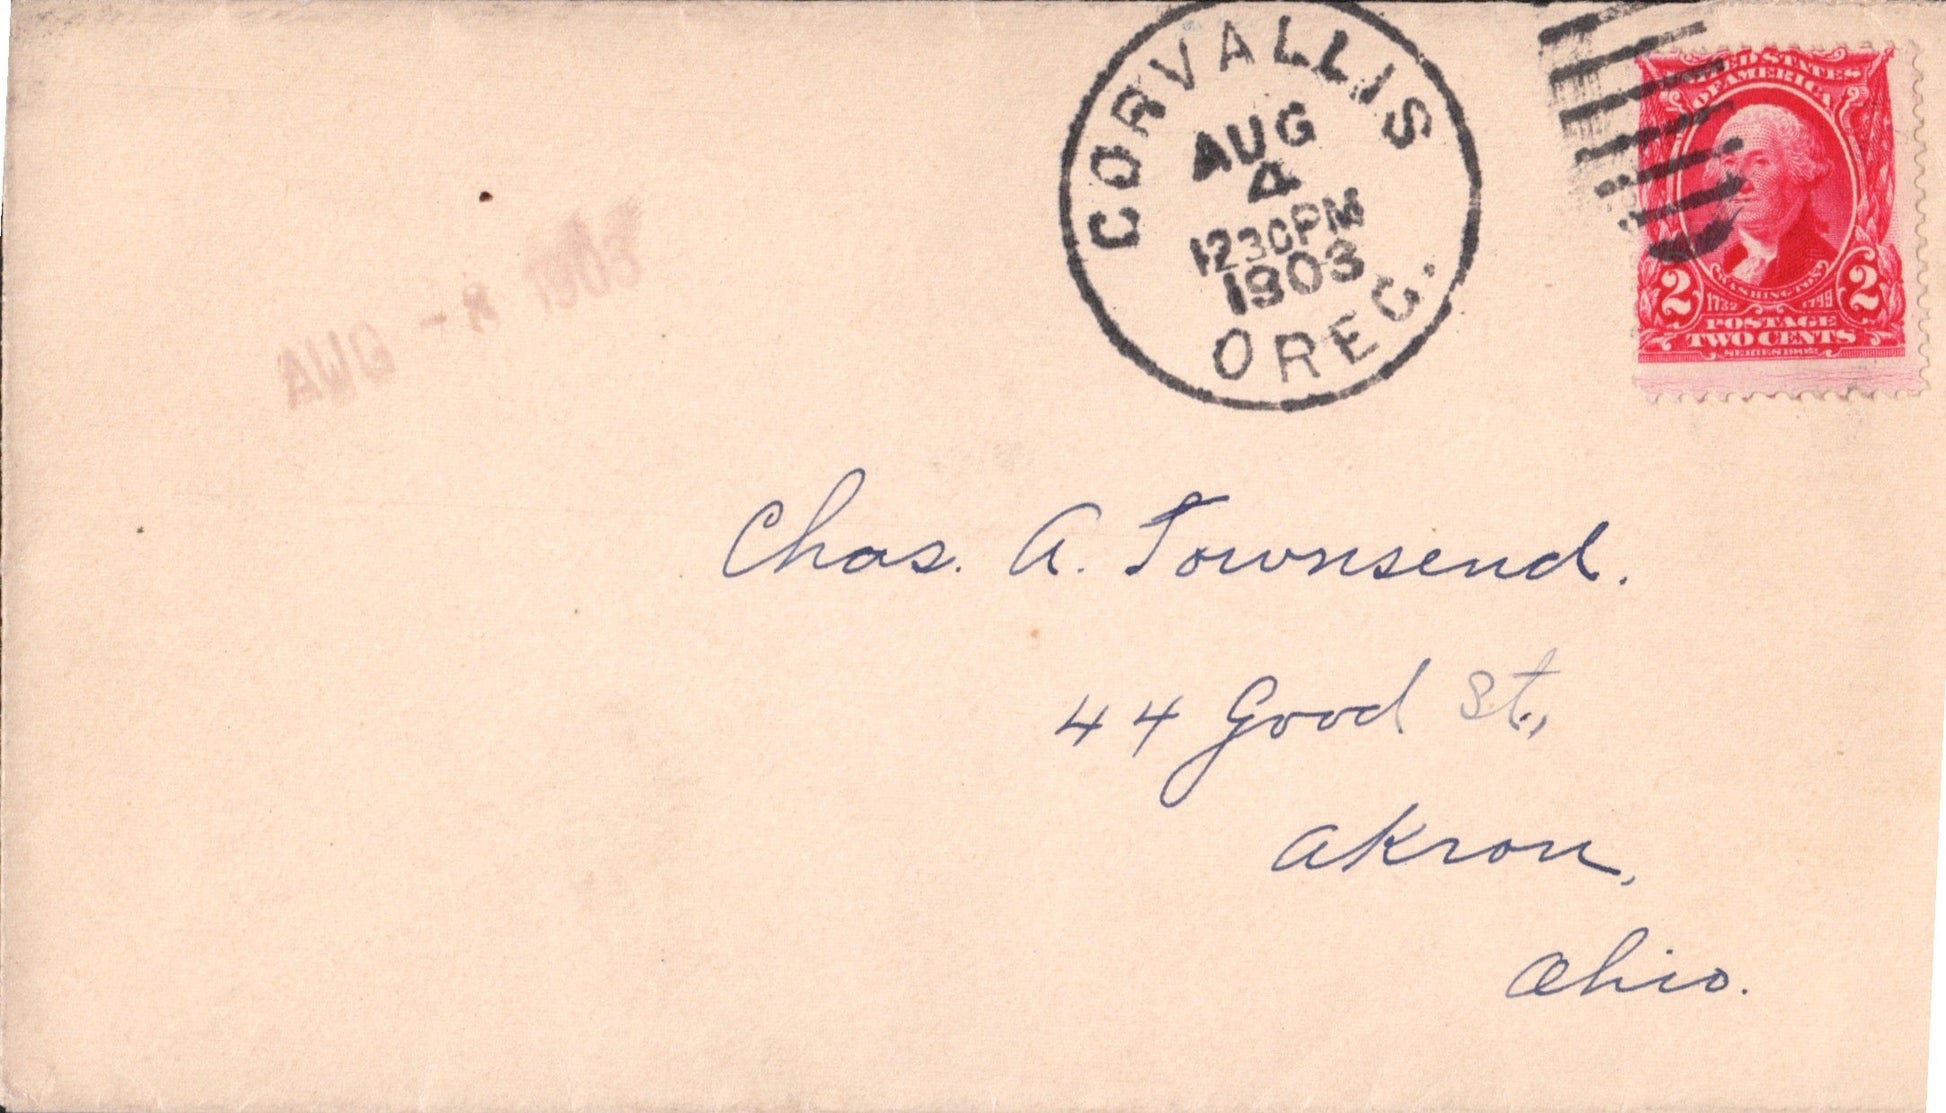 CORVALLIS
AUG
4
1230PM
1903
OREG.
UNITED STATES
OF AMERICA
WASHINGTON
1732 1799
2 2
POSTAGE
TWO CENTS
SERIES 1902
Chas. A. Townsend.
44 Good St.,
Akron,
Ohio.